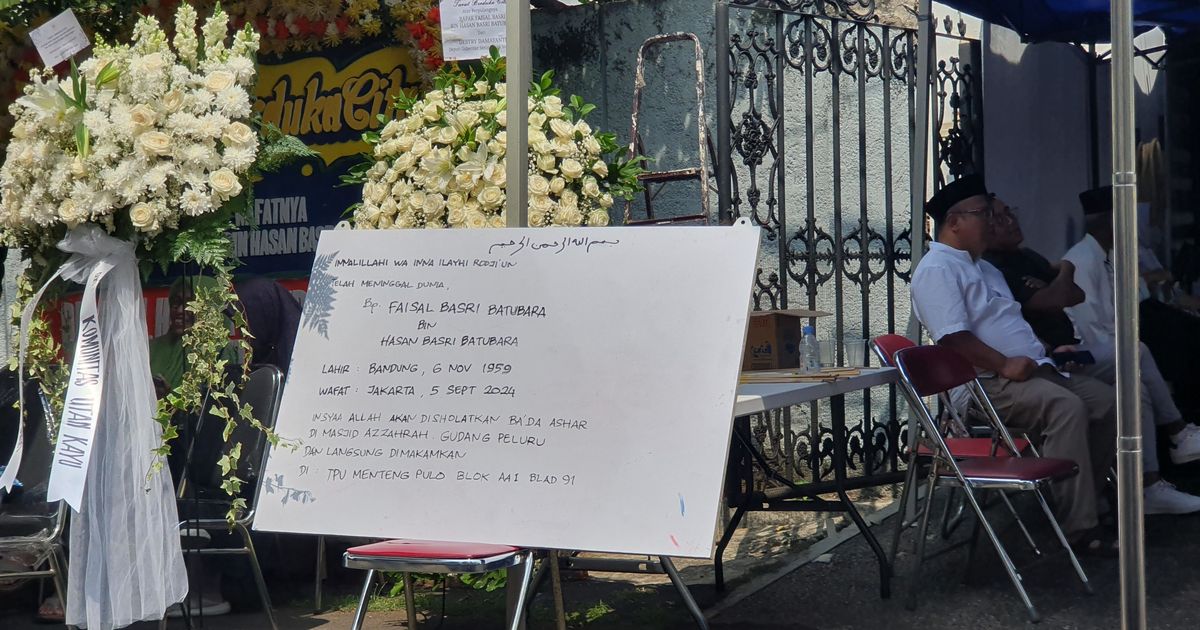 BAPAK FAISAL BASRI
BIN HASAN BASRI BATUBARA
Dari
DESTRY DAMAYANTI
Duka Cita
FATNYA
HASAN
KOMUNITAS UTAN KAYU
بسم الله الرحمن الرحيم
INNALILLAHI WA INNA ILAYHI RODJI'UN
TELAH MENINGGAL DUNIA,
Bp. FAISAL BASRI BATUBARA
BIN
HASAN BASRI BATUBARA
LAHIR : BANDUNG, 6 NOV 1959
WAFAT : JAKARTA, 5 SEPT 2024
INSYAA ALLAH AKAN DISHOLATKAN BA'DA ASHAR
DI MASJID AZZAHRAH. GUDANG PELURU
DAN LANGSUNG DIMAKAMKAN
DI : TPU MENTENG PULO BLOK AA1 BLAD 91